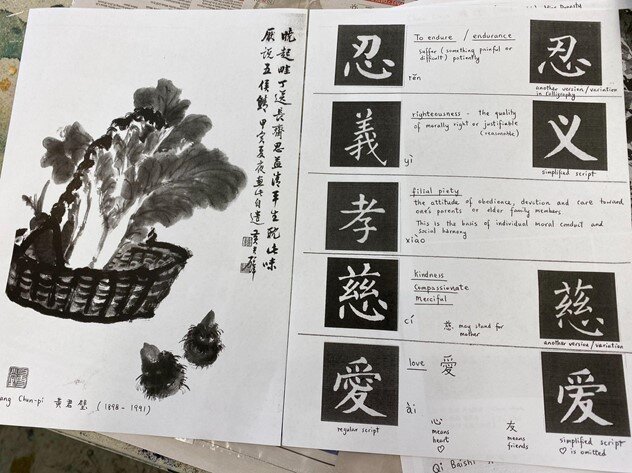 晚起畦丁送長齋思益清平生耽此味
厭說五侯鯖 甲寅夏夜畫此自遣
黃君璧
ang Chun-pi 黃君璧 (1898 - 1991)
忍
To endure / endurance
suffer (something painful or
difficult) patiently
rěn
忍
another version/variation
in calligraphy
義
righteousness - the quality
of morally right or justifiable
(reasonable)
yì
义
simplified script
孝
filial piety
the attitude of obedience, devotion and care toward
one's parents or elder family members
This is the basis of individual moral conduct and
social harmony
xiào
慈
kindness
compassionate
merciful
cí
慈 may stand for
mother
慈
another version/variation
愛
regular script
love 愛
ài
心
means
heart
♡
友
means
friends
爱
simplified script
♡ is omitted
Qi Baishi